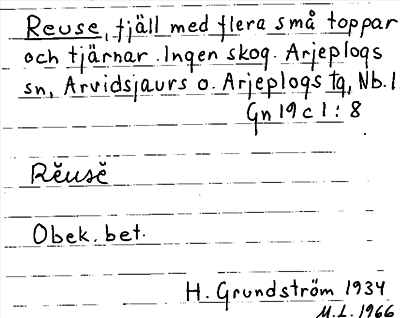 Reuse, fjäll med flera små toppar
och tjärnar. Ingen skog. Arjeplogs
sn, Arvidsjaurs o. Arjeplogs tg, Nb.l
Gn 19 c 1 : 8
Rĕusĕ
Obek. bet.
H. Grundström 1934
M.L. 1966